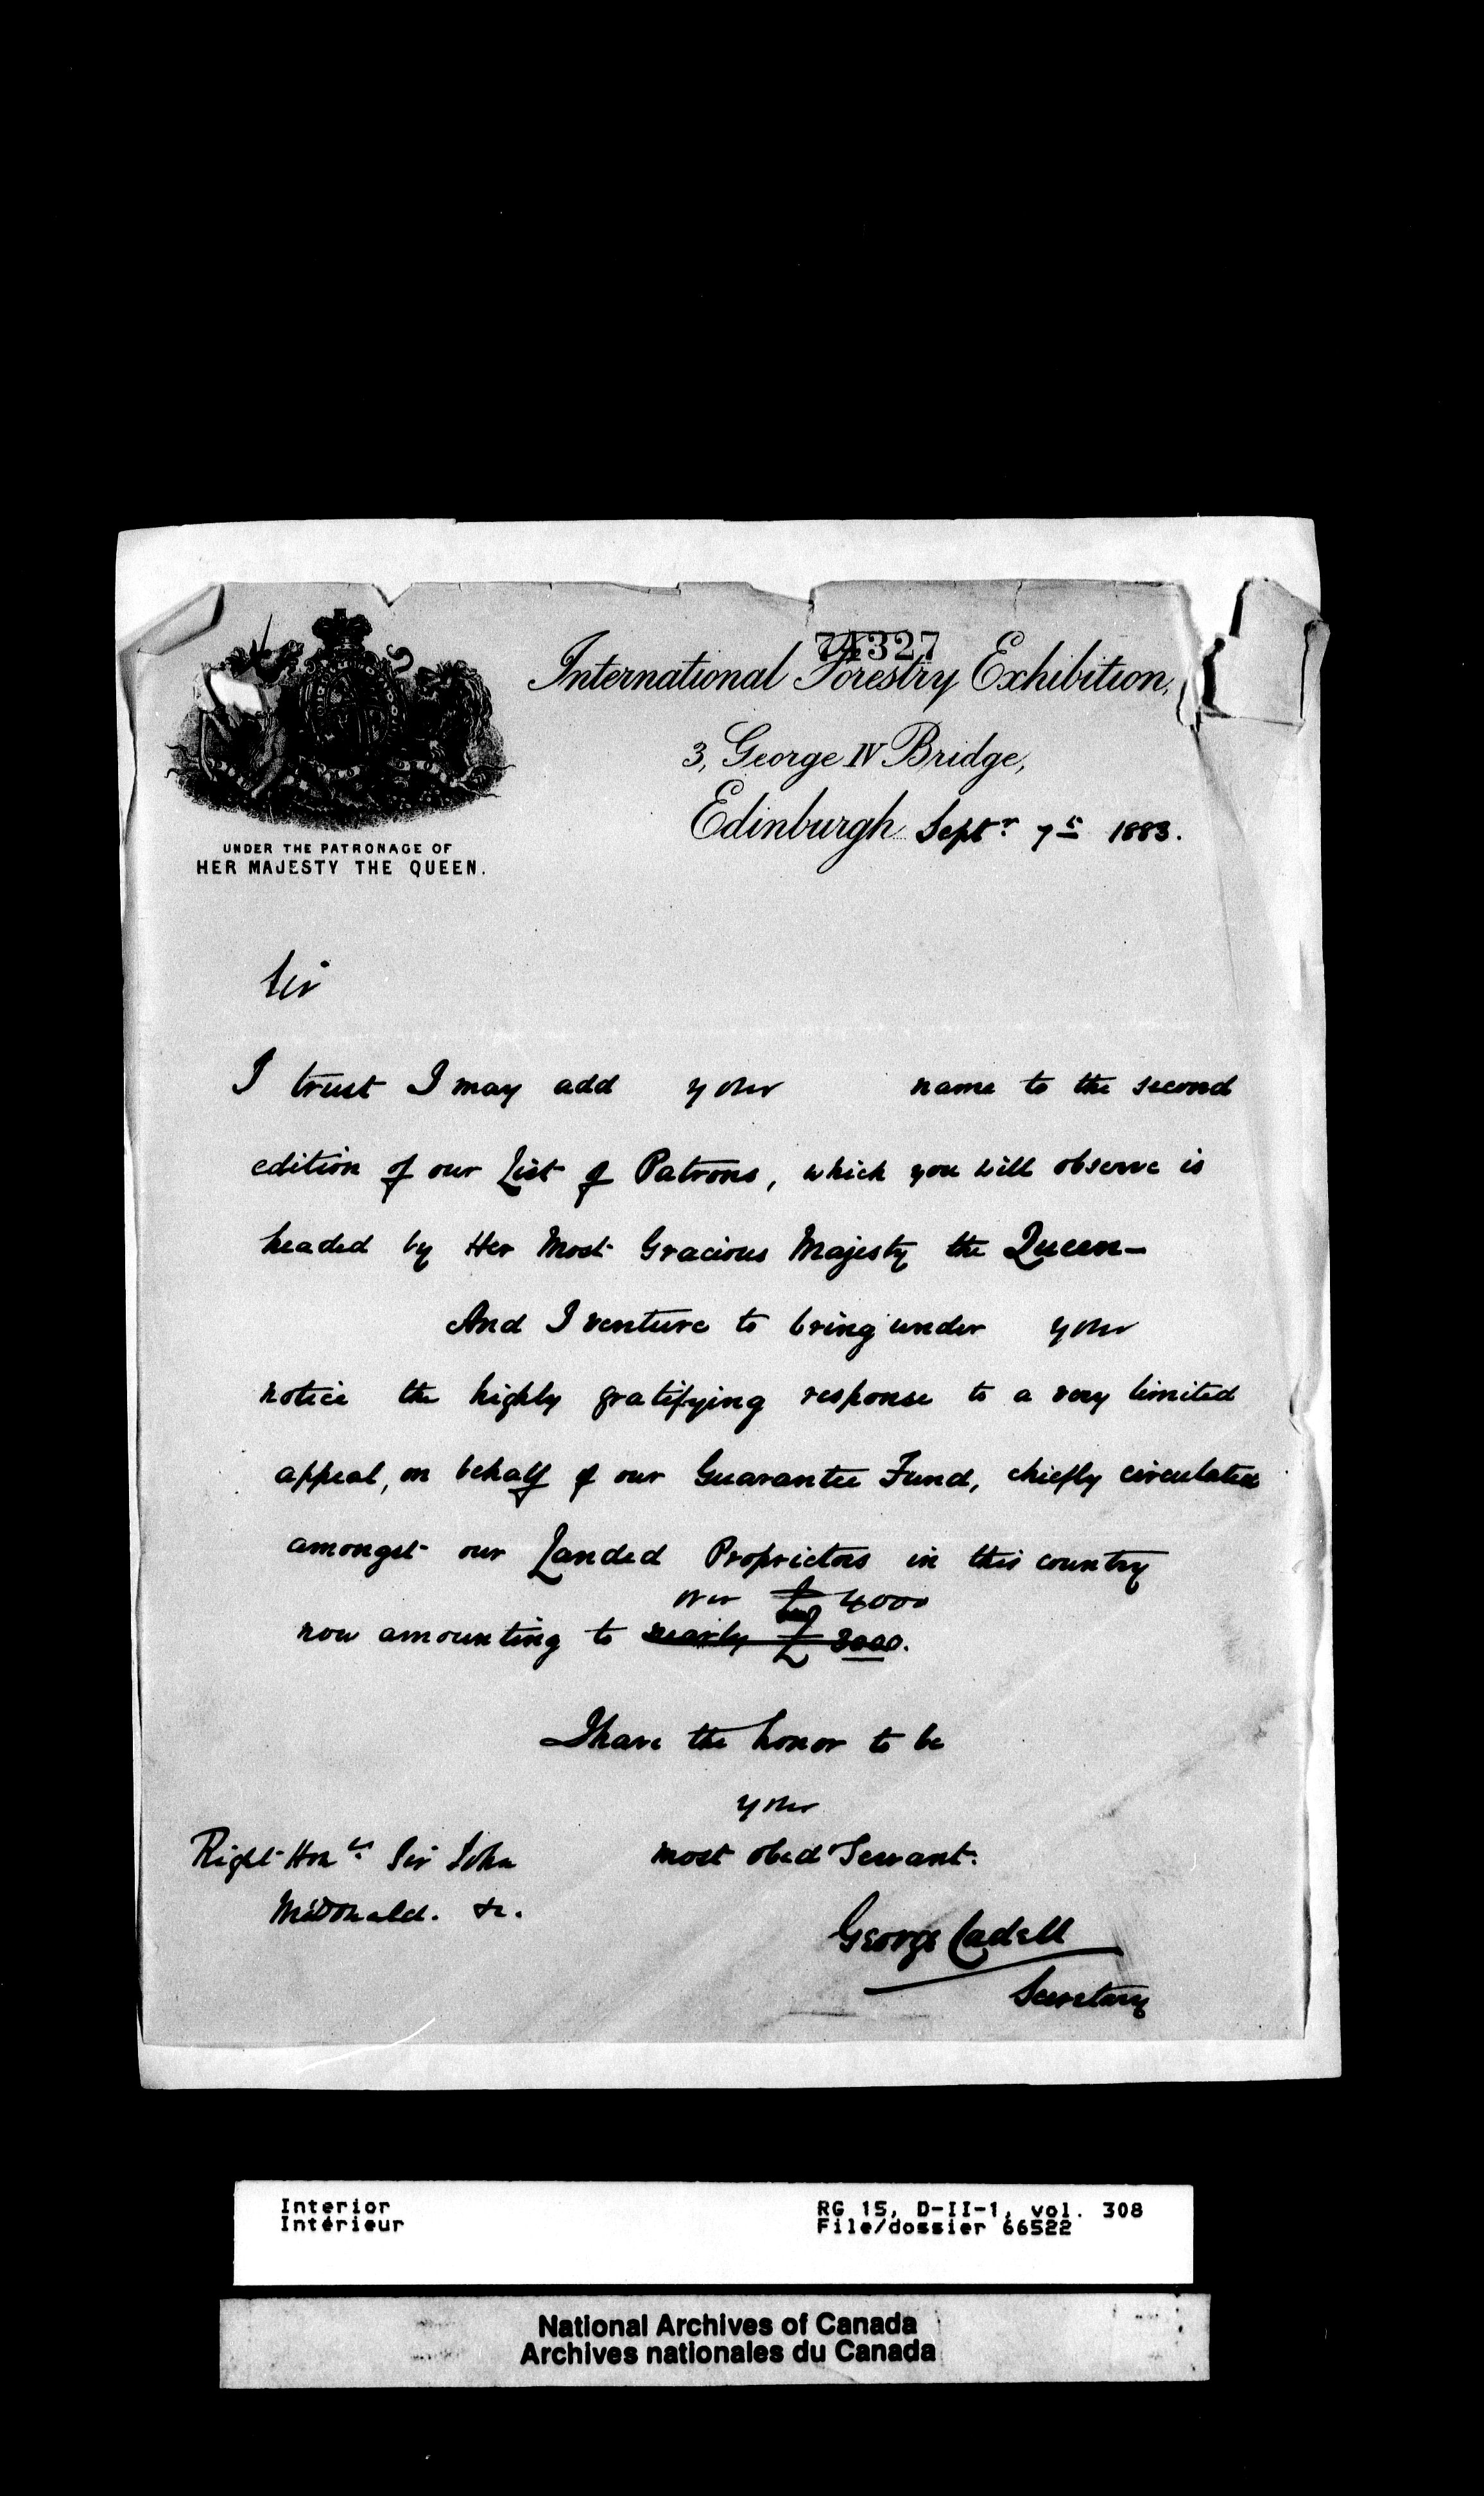 74327
International Forestry Exhibition,
3, George IV Bridge,
Edinburgh Septr. 7th 1883.
UNDER THE PATRONAGE OF
HER MAJESTY THE QUEEN.
Sir
I trust I may add your name to the second
edition of our List of Patrons, which you will observe is
headed by Her Most Gracious Majesty the Queen—
And I venture to bring under your
notice the highly gratifying response to a very limited
appeal, on behalf of our Guarantee Fund, chiefly circulated
amongst our Landed Proprietors in this country
over £4000
now amounting to nearly £3000.
I have the honor to be
your
most obed Servant.
Right Honble. Sir John
McDonald. &c.
George Cadell
Secretary
Interior
Intérieur
RG 15, D-II-1, vol. 308
File/dossier 66522
National Archives of Canada
Archives nationales du Canada